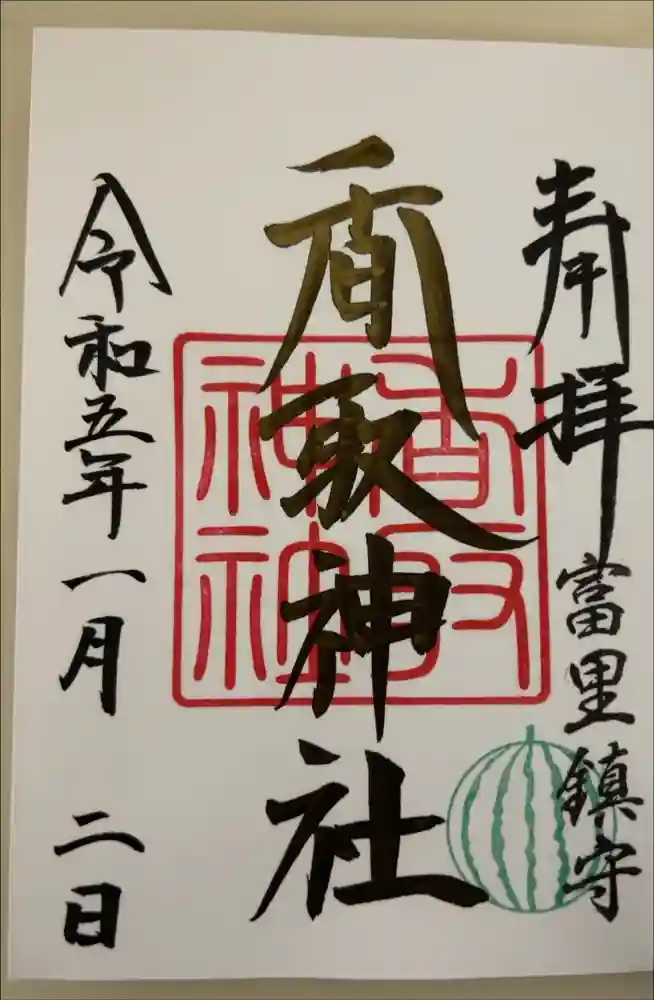 奉拝 富里鎮守
香取神社
香取
神社
令和五年一月 二日